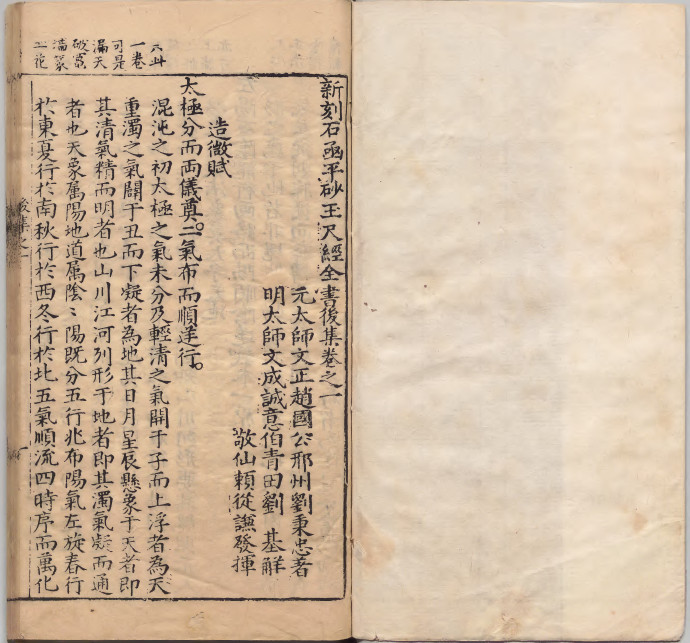 新刻石函平砂玉尺經全書後集卷之一
元太師文正趙國公邢州劉秉忠著
明太師文成誠意伯青田劉基解
敬仙賴從謙發揮
造微賦
太極分而兩儀奠。二氣布而順逆行。
混沌之初太極之氣未分及輕清之氣開于子而上浮者為天
重濁之氣闢于丑而下凝者為地其日月星辰懸象于天者即
其清氣精而明者也山川江河列形于地者即其濁氣凝而通
者也天象属陽地道属陰〻陽既分五行兆布陽氣左旋春行
於東夏行於南秋行於西冬行於北五氣順流四時序而萬化
後集之一
一卷
可是
漏天